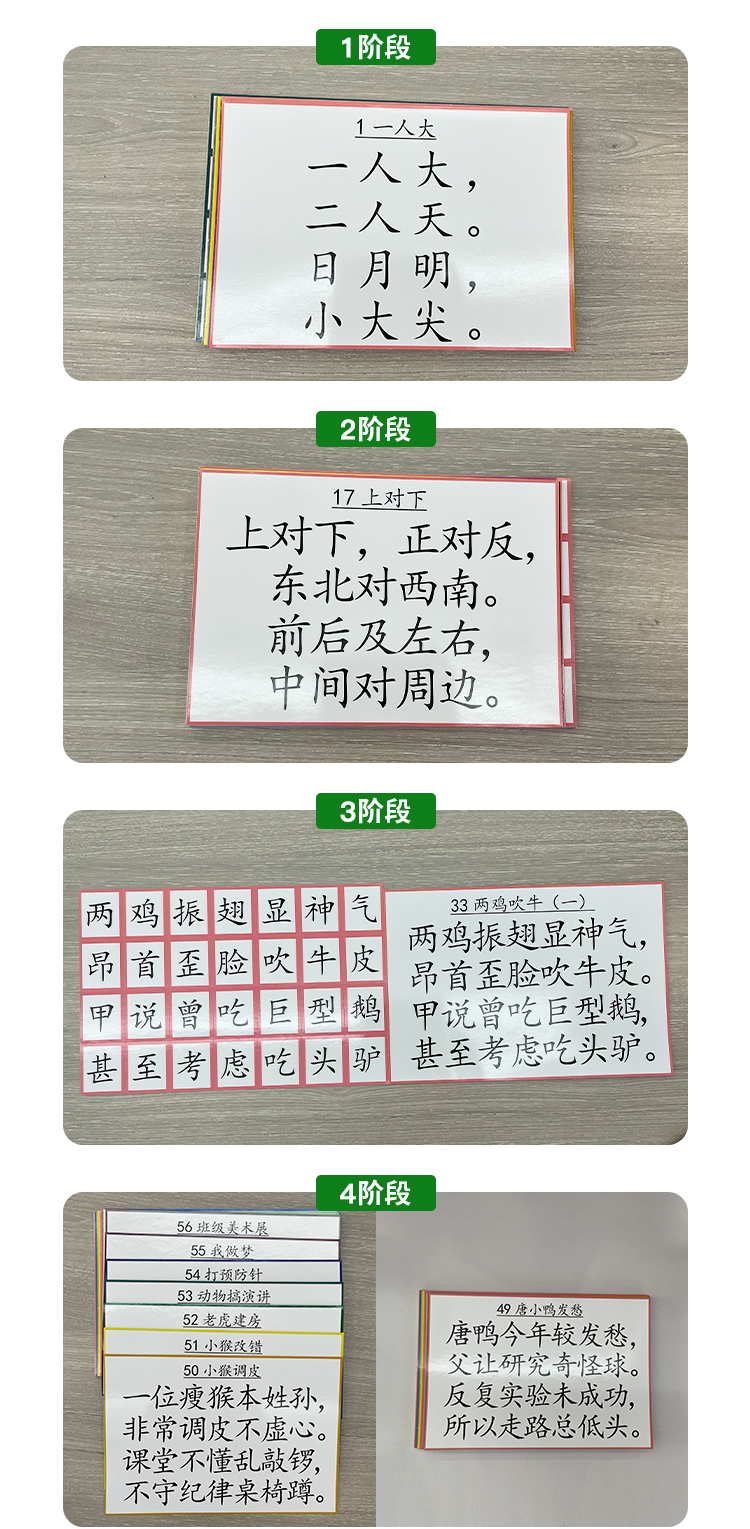 1阶段
1 一人大
一人大，
二人天。
日月明，
小大尖。
2阶段
17 上对下
上对下，正对反，
东北对西南。
前后及左右，
中间对周边。
3阶段
两鸡振翅显神气
昂首歪脸吹牛皮
甲说曾吃巨型鹅
甚至考虑吃头驴
33 两鸡吹牛（一）
两鸡振翅显神气，
昂首歪脸吹牛皮。
甲说曾吃巨型鹅，
甚至考虑吃头驴。
4阶段
56 班级美术展
55 我做梦
54 打预防针
53 动物搞演讲
52 老虎建房
51 小猴改错
50 小猴调皮
一位瘦猴本姓孙，
非常调皮不虚心。
课堂不懂乱敲锣，
不守纪律桌椅蹲。
49 唐小鸭发愁
唐鸭今年较发愁，
父让研究奇怪球。
反复实验未成功，
所以走路总低头。